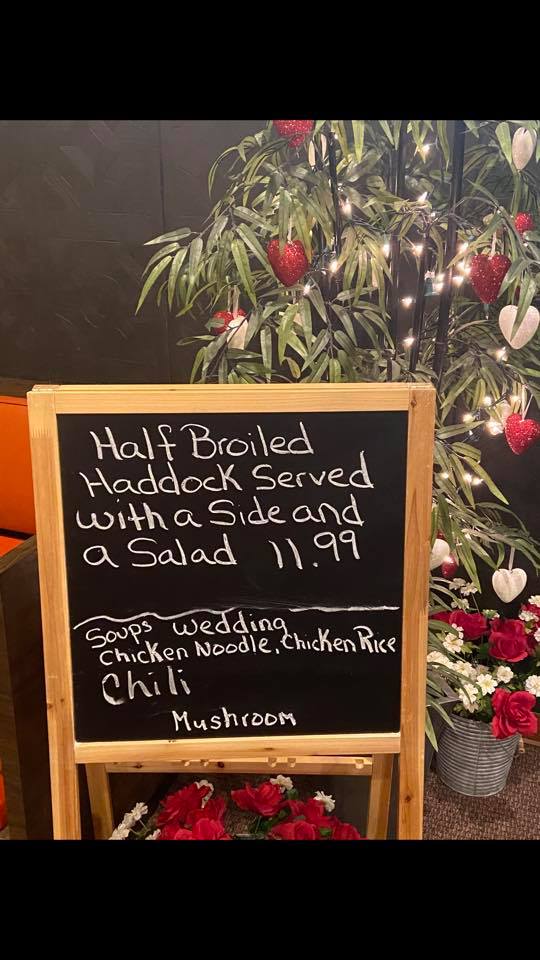 Half Broiled
Haddock Served
with a Side and
a Salad 11.99
Soups wedding
Chicken Noodle, Chicken Rice
Chili
Mushroom